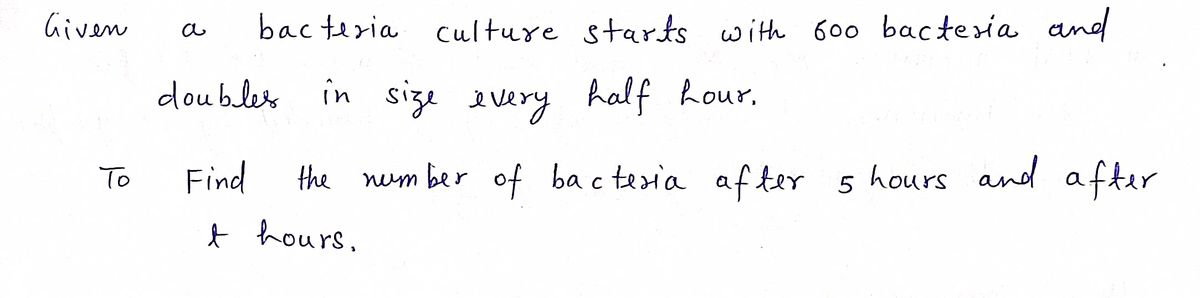 Given a bacteria culture starts with 600 bacteria and
doubles in size every half hour.
To Find the number of bacteria after 5 hours and after
t hours.